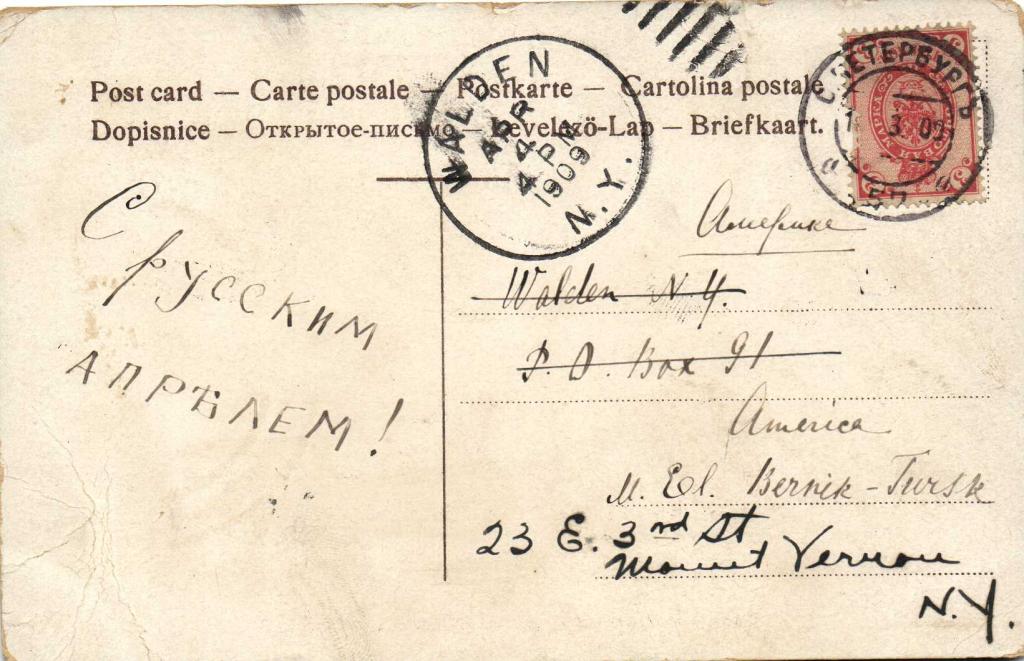 Post card — Carte postale — Postkarte — Cartolina postale
Dopisnice — Открытое-письмо — Levelező-Lap — Briefkaart.
WALDEN
APR
4
PM
1909
N.Y.
С.ПЕТЕРБУРГЪ
3 09
МАРКА
3
С русским
апрѣлем!
Америка
Walden N.Y.
P.O. Box 91
America
M. El. Bernik-Tursk
23 E. 3rd St
Mount Vernon
N.Y.